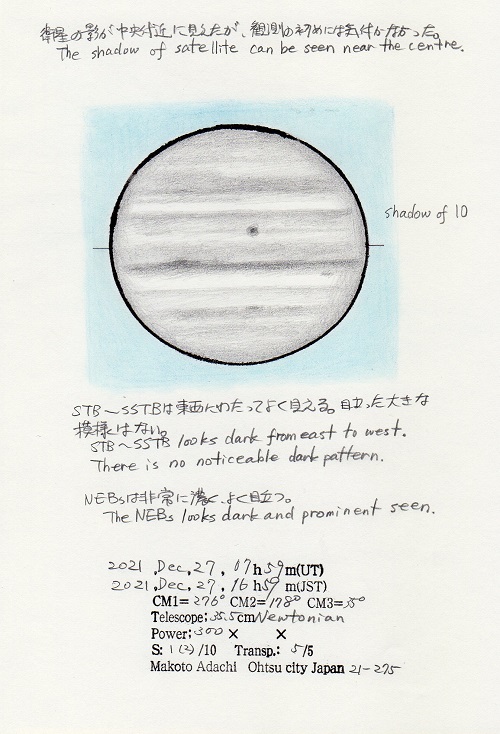 衛星の影が中央付近に見えたが、観測の初めには気付かなかった。
The shadow of satellite can be seen near the centre.
shadow of IO
STB～SSTBは東西にわたってよく見える。目立った大きな
模様はない。
STB～SSTB looks dark from east to west.
There is no noticeable dark pattern.
NEBsは非常に濃く、よく目立つ。
The NEBs looks dark and prominent seen.
2021 ,Dec,27, 07h59m(UT)
2021 ,Dec,27, 16h59 m(JST)
CM1=276° CM2=178° CM3=35°
Telescope;35.5cm Newtonian
Power;300 × ×
S: 1(2)/10 Transp.: 5/5
Makoto Adachi Ohtsu city Japan 21-275